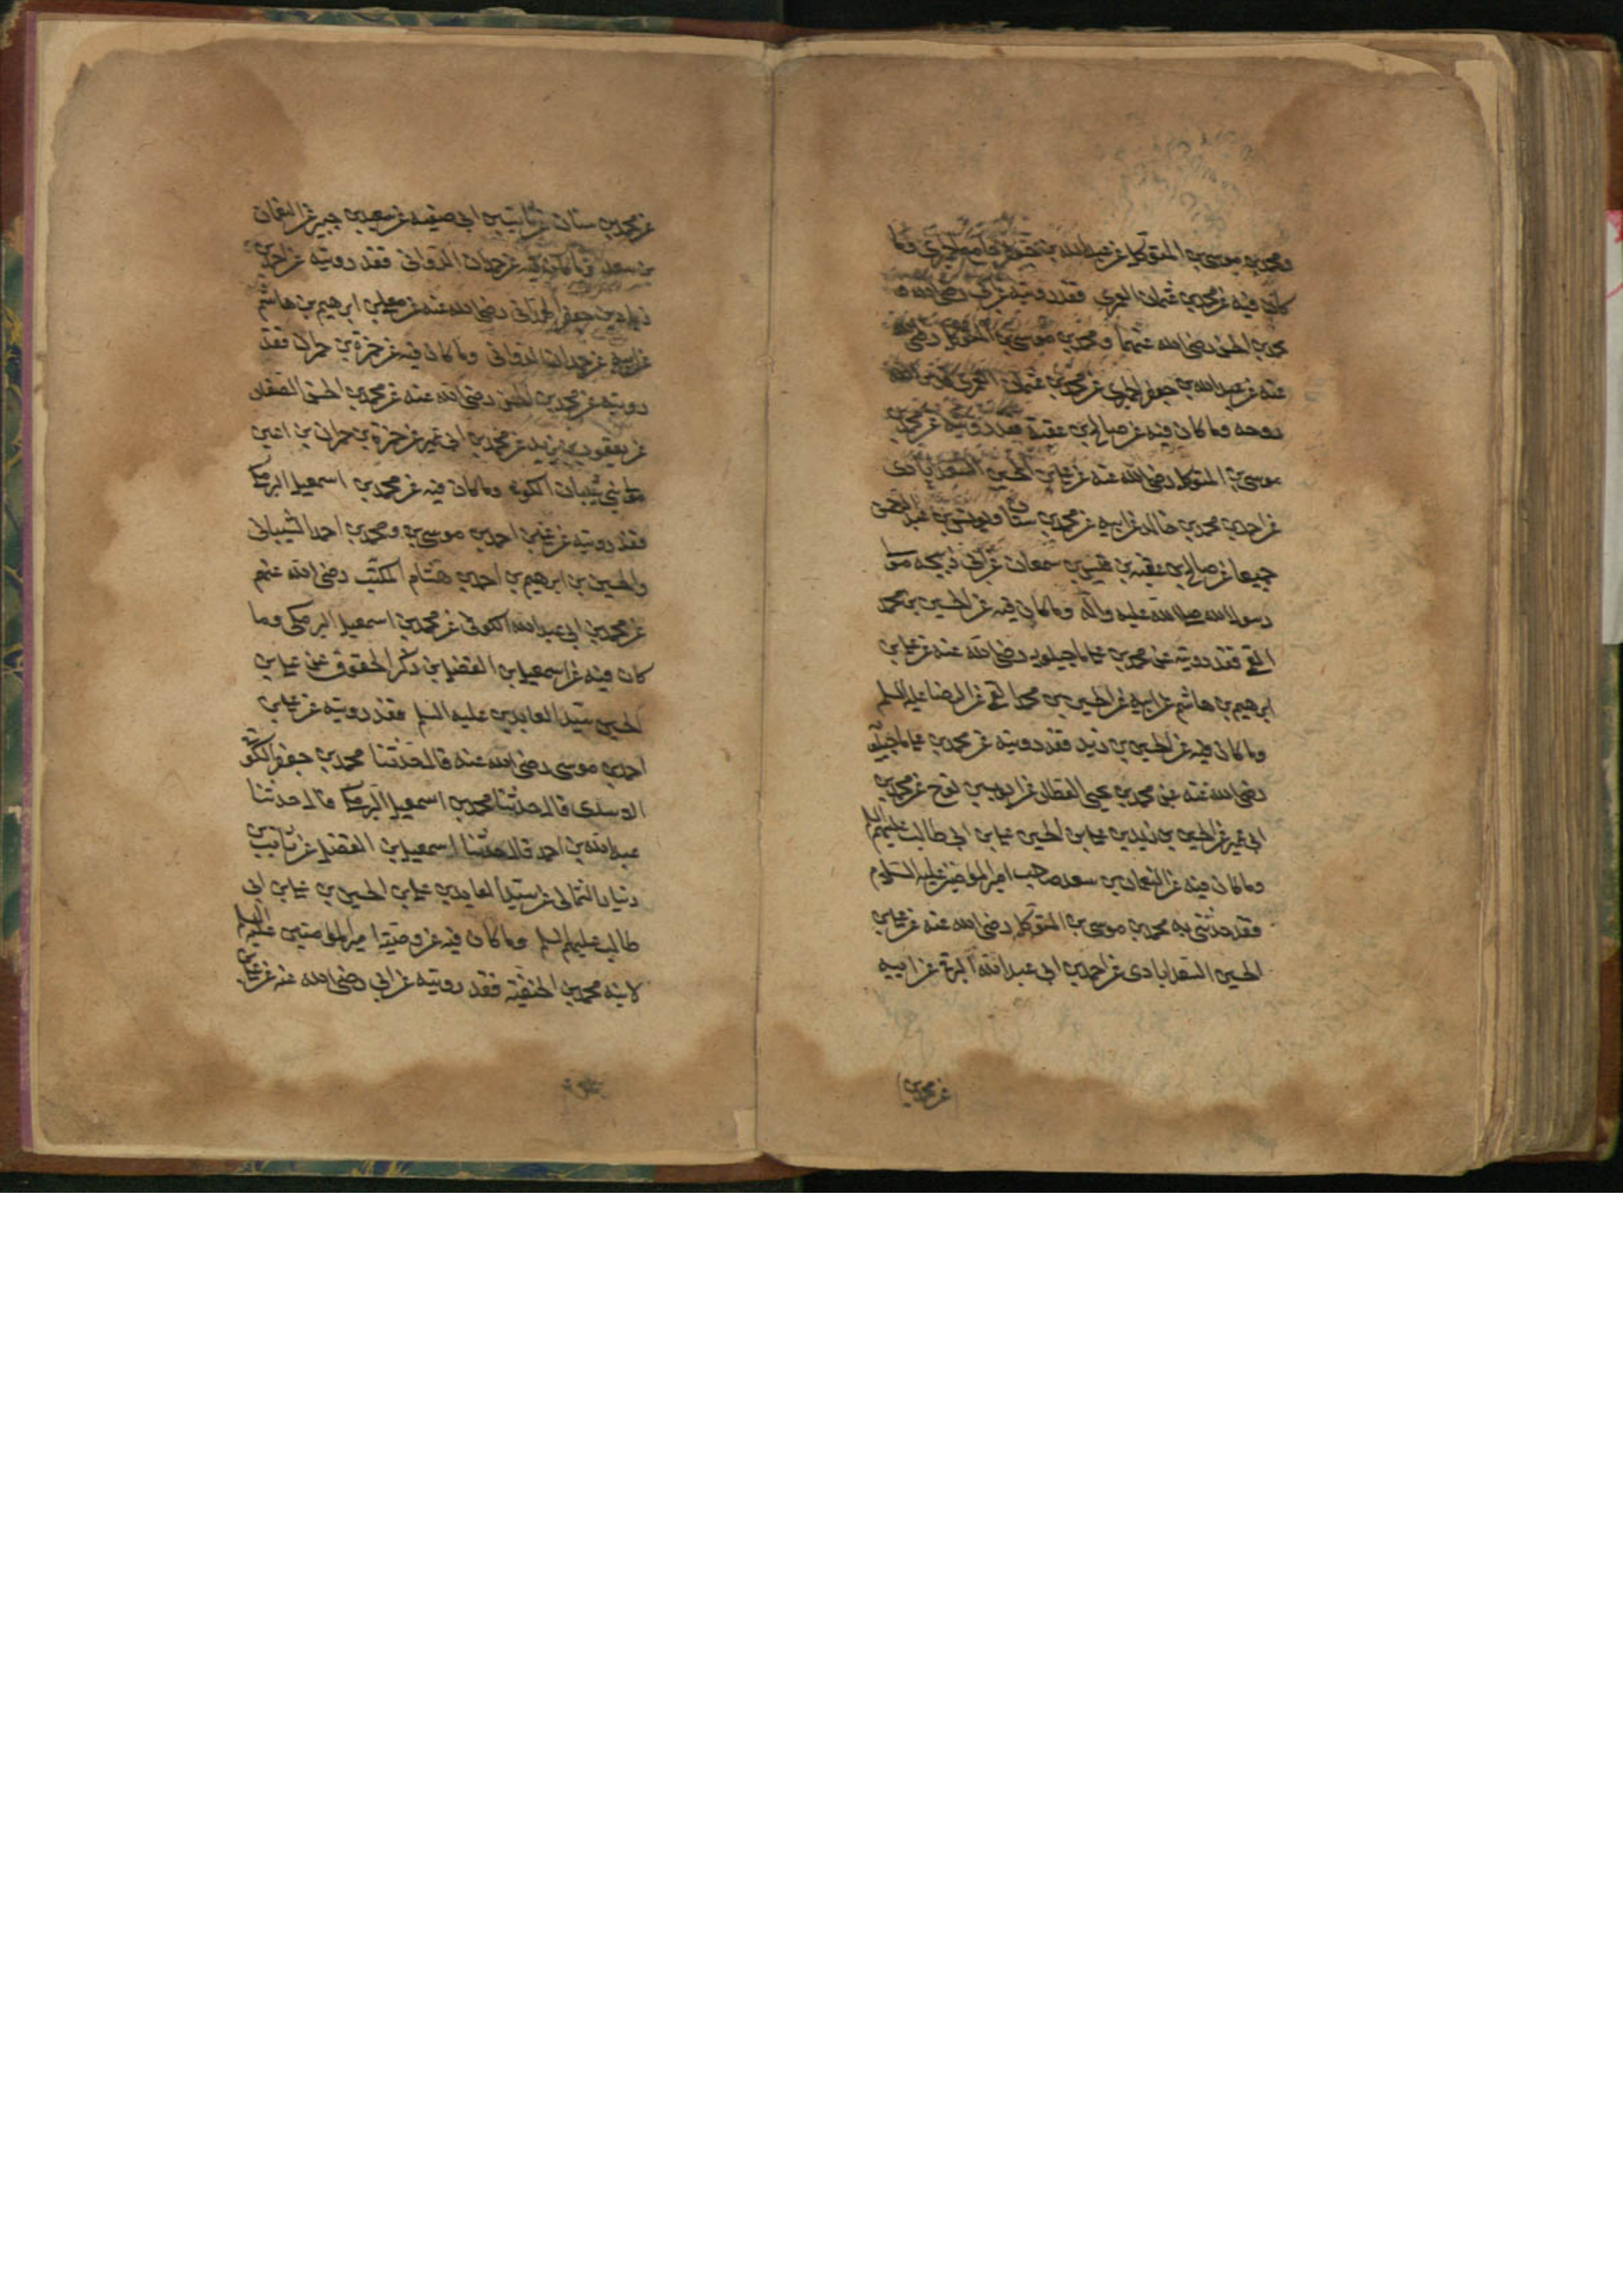 ومحمد بن موسى بن المتوكل عن عبدالله بن جعفر الحميري وما
كان فيه عن محمد بن عثمان العمري فقد رويته عن ابي رضي الله
محمد بن الحسن رضي الله عنهما ومحمد بن موسى بن المتوكل رضي الله
عنه عن عبد الله بن جعفر الحميري عن محمد بن عثمان العمري قدس الله
روحه وما كان فيه عن صالح بن عقبة فقد رويته عن محمد بن
موسى بن المتوكل رضي الله عنه عن علي بن الحسين السعدابادي
عن احمد بن محمد بن خالد عن ابيه عن محمد بن سنان ويونس بن عبد الرحمن
جميعا عن صالح بن عقبه بن قيس بن سمعان عن ابي ذبيحه مولى
رسول الله صلى الله عليه واله وما كان فيه عن الحسين بن محمد
القمي فقد رويته عن محمد بن علي ماجيلويه رضي الله عنه عن علي بن
ابرهيم بن هاشم عن ابيه عن الحسين بن محمد القمي عن الرضا عليه السلم
وما كان فيه عن الحسين بن زيد فقد رويته عن محمد بن علي ماجيلويه
رضي الله عنه عن محمد بن يحيى العطار عن ايوب بن نوح عن محمد بن
ابي عمير عن الحسين بن زيد بن علي بن الحسين علي بن ابي طالب عليهم السلم
وما كان فيه عن النعمان بن سعد صاحب امير المؤمنين عليه السلام
فقد حدثني به محمد بن موسى بن المتوكل رضي الله عنه عن علي بن
الحسين السعدابادي عن احمد بن ابي عبد الله البرقي عن ابيه
عن محمد بن
عن محمد بن سنان عن ثابت بن ابي صفيه عن سعيد بن جبير عن النعمان
بن سعد وما كان فيه عن حمدان الديواني فقد رويته عن احمد بن
زياد بن جعفر الهمداني رضي الله عنه عن علي بن ابرهيم بن هاشم
عن ابيه عن حمدان الديواني وما كان فيه عن حمزة بن حمران فقد
رويته عن محمد بن الحسن رضي الله عنه عن محمد بن الحسن الصفار
عن يعقوب بن يزيد عن محمد بن ابي عمير عن حمزة بن حمران بن اعين
مولى بني شيبان الكوفي وما كان فيه عن محمد بن اسمعيل البرمكي
فقد رويته عن علي بن احمد بن موسى بن ومحمد بن احمد الشيباني
والحسين بن ابرهيم بن احمد بن هشام المكتب رضي الله عنهم
عن محمد بن ابي عبد الله الكوفي عن محمد بن اسمعيل البرمكي وما
كان فيه عن اسمعيل بن الفضل من ذكر الحقوق عن علي بن
الحسين سيد العابدين عليه السلم فقد رويته عن علي بن
احمد بن موسى رضي الله عنه قال حدثنا محمد بن جعفر الكوفي
الاسدي قال حدثنا محمد بن اسمعيل البرمكي قال حدثنا
عبد الله بن احمد قال حدثنا اسمعيل بن الفضل عن ثابت بن
دينار الثمالي عن سيد العابدين علي بن الحسين بن علي بن ابي
طالب عليهم السلم وما كان فيه عن وصية امير المؤمنين عليه السلم
لابنه محمد بن الحنفية فقد رويته عن ابي رضي الله عنه عن علي بن